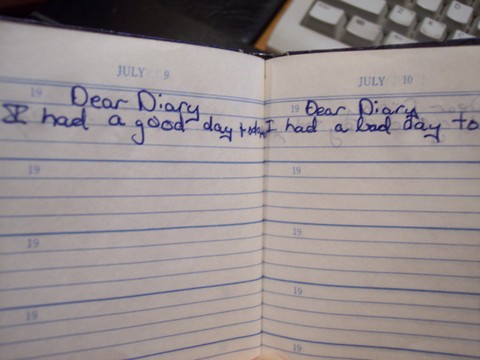 JULY 9
19
Dear Diary
I had a good day today
19
19
19
JULY 10
19
Dear Diary
I had a bad day to
19
19
19
19